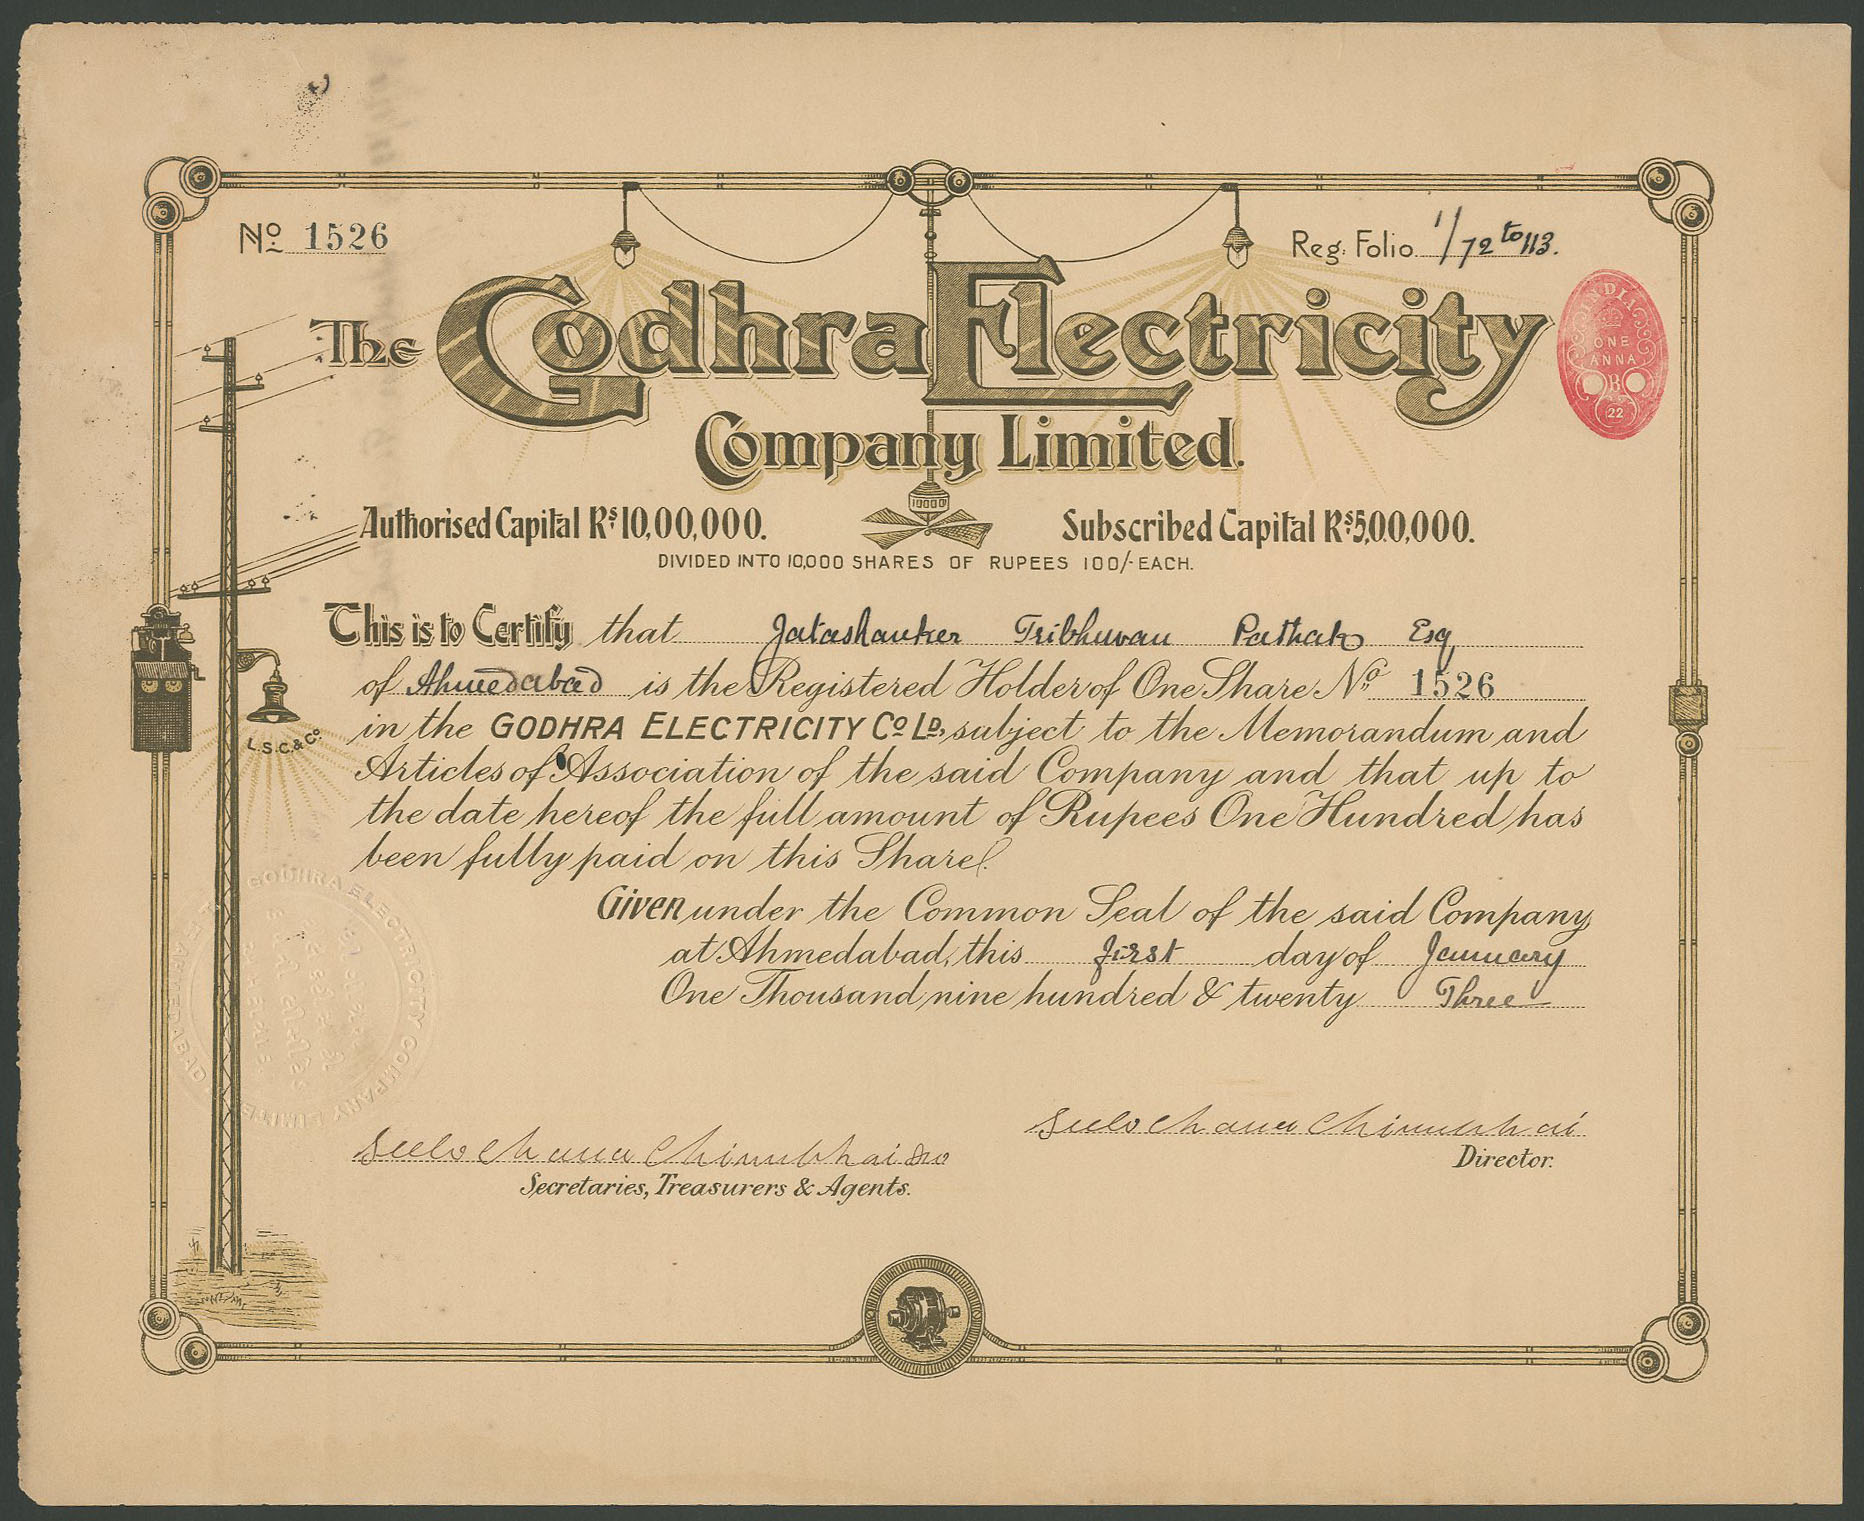 No. 1526
Reg. Folio 1/72 to 113.
INDIA
ONE
ANNA
B
22
The Godhra Electricity
Company Limited.
10000
Authorised Capital Rs. 10,00,000. Subscribed Capital Rs. 5,00,000.
DIVIDED INTO 10,000 SHARES OF RUPEES 100/- EACH.
This is to Certify that Jatashanker Tribhuvan Pathak Esq
of Ahmedabad is the Registered Holder of One Share No. 1526
in the GODHRA ELECTRICITY Co. Ld., subject to the Memorandum and
L.S.C. & Co.
Articles of Association of the said Company and that up to
the date hereof the full amount of Rupees One Hundred has
been fully paid on this Share.
Given under the Common Seal of the said Company,
at Ahmedabad, this first day of January
One Thousand nine hundred & twenty Three
THE GODHRA ELECTRICITY COMPANY LIMITED AHMEDABAD
Sulochana Chinubhai
Director.
Sulochana Chinubhai & Co
Secretaries, Treasurers & Agents.